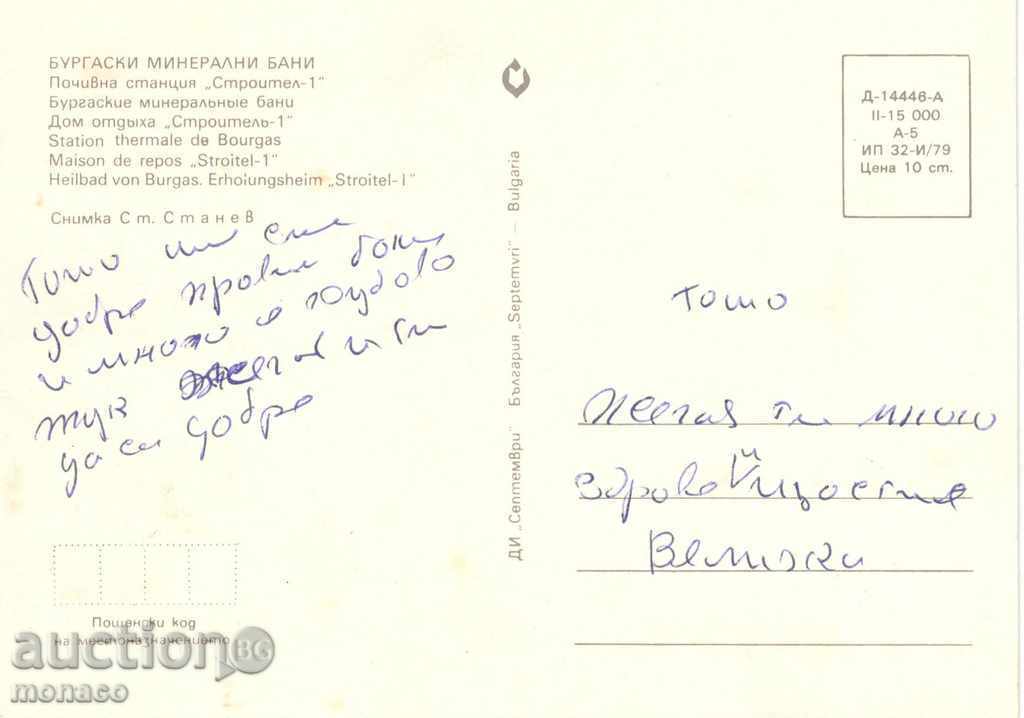 БУРГАСКИ МИНЕРАЛНИ БАНИ
Почивна станция „Строител-1"
Бургаские минеральные бани
Дом отдыха „Строитель-1"
Station thermale de Bourgas
Maison de repos „Stroitel-1"
Heilbad von Burgas. Erhoiungsheim „Stroitel-I"
Снимка Ст. Станев
Тошо ми сме
добре правим бани
и много е хубаво
тук желая и ти
да си добре
Пощенски код
на местоназначението
ДИ „Септември" България „Septemvri" — Bulgaria
Д-14446-А
II-15 000
А-5
ИП 32-И/79
Цена 10 ст.
Тошо
Желая ти много
здраве й щастие
Велички
auction BG
monaco